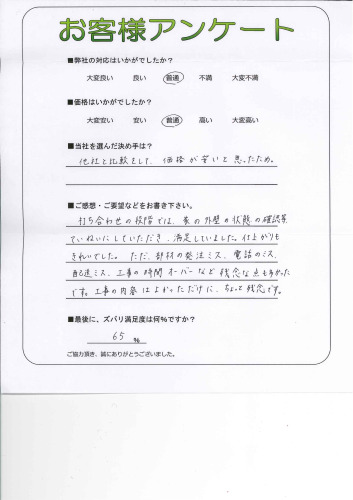 お客様アンケート
■弊社の対応はいかがでしたか?
大変良い 良い 普通 不満 大変不満
■価格はいかがでしたか?
大変安い 安い 普通 高い 大変高い
■当社を選んだ決め手は?
他社と比較をして、価格が安いと思ったため。
■ご感想・ご要望などをお書き下さい。
打ち合わせの段階では、家の外壁の状態の確認等
ていねいにしていただき、満足していました。仕上がりも
きれいでした。ただ、部材の発注ミス、電話のミス、
配達ミス、工事の時間オーバーなど残念な点も多かった
です。工事の内容はよかっただけに、ちょっと残念です。
■最後に、ズバリ満足度は何%ですか?
65 %
ご協力頂き、誠にありがとうございました。